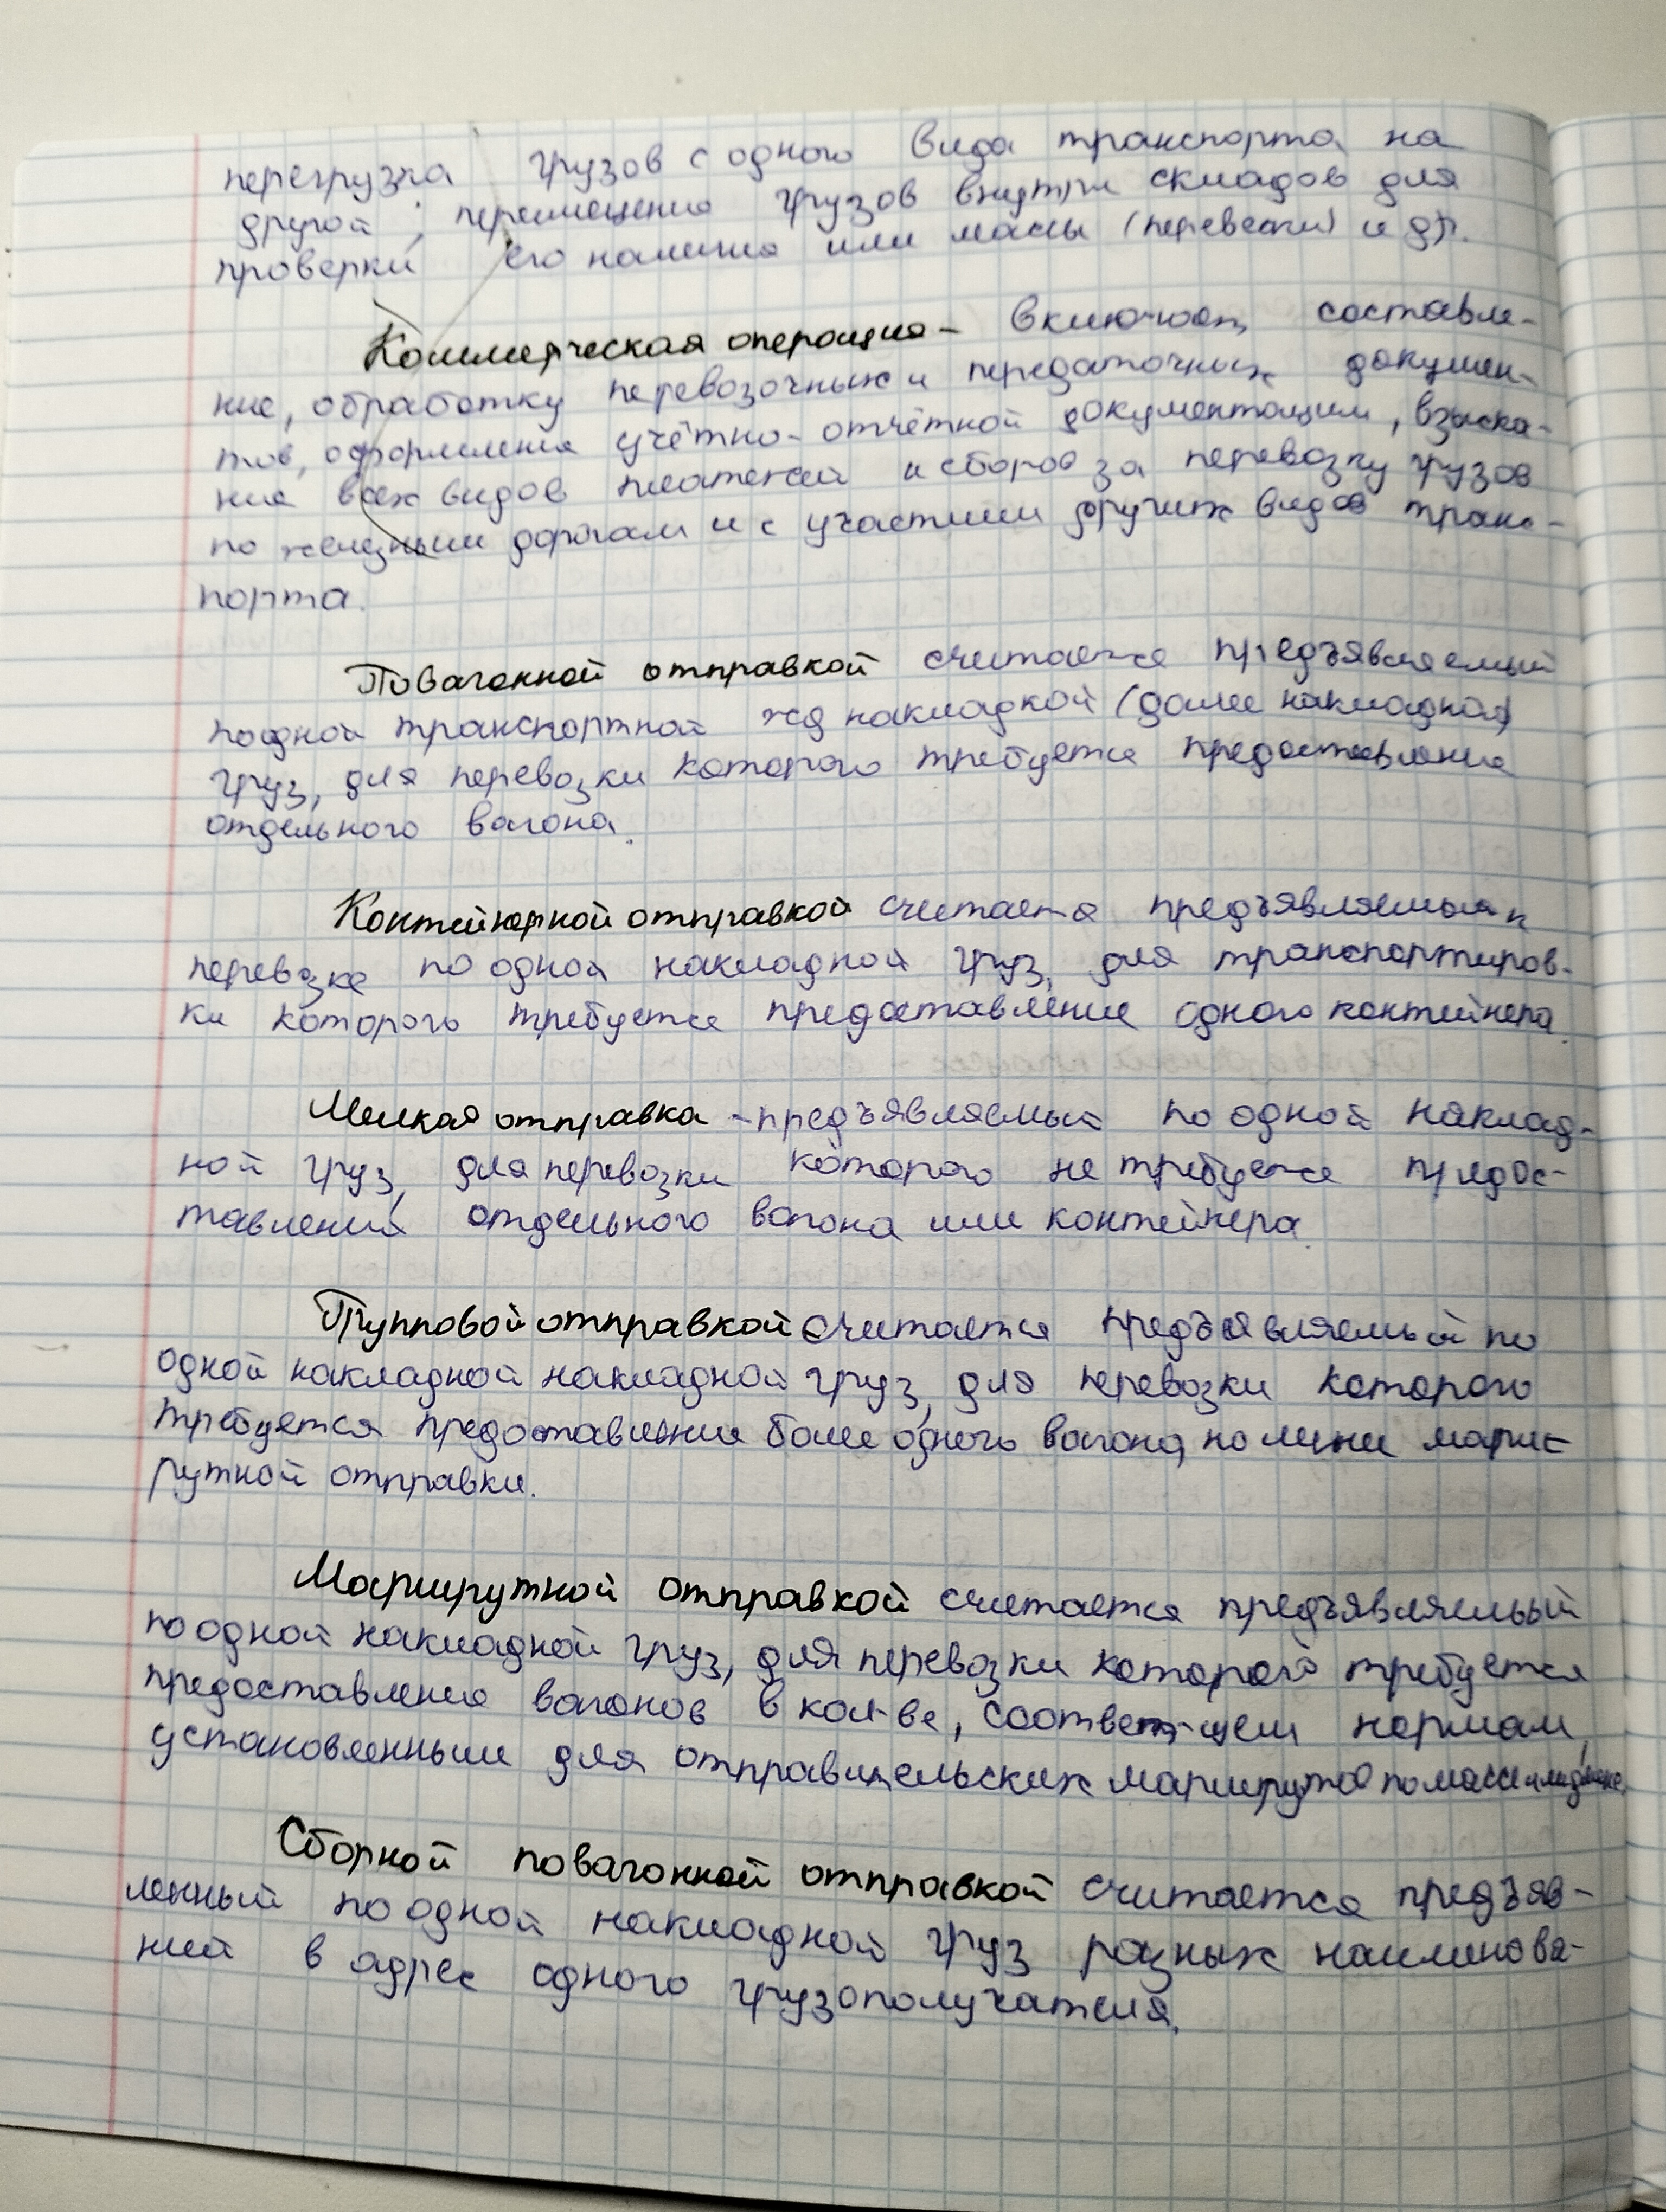 перегрузка грузов с одного вида транспорта на
другой; перемещение грузов внутри складов для
проверки его наличия или массы (перевески) и др.
Коммерческая операция - включают составле-
ние, обработку перевозочных и передаточных докумен-
тов, оформления учётно-отчётной документации, взыска-
ние всех видов платежей и сборов за перевозку грузов
по железным дорогам и с участием других видов транс-
порта.
Повагонной отправкой считается предъявляемый
по одной транспортной жд накладной (далее накладной)
груз, для перевозки которого требуется предоставление
отдельного вагона.
Контейнерной отправкой считается предъявляемый к
перевозке по одной накладной груз, для транспортиров-
ки которого требуется предоставление одного контейнера.
Мелкая отправка - предъявляемый по одной наклад-
ной груз, для перевозки которого не требуется предос-
тавления отдельного вагона или контейнера.
Групповой отправкой считается предъявляемый по
одной накладной накладной груз, для перевозки которого
требуется предоставление более одного вагона, но менее марш-
рутной отправки.
Маршрутной отправкой считается предъявляемый
по одной накладной груз, для перевозки которого требуется
предоставление вагонов в кол-ве, соответ-щем нормам,
установленным для отправительских маршрутов по массе или длине.
Сборной повагонной отправкой считается предъяв-
ленный по одной накладной груз разных наименова-
ний в адрес одного грузополучателя.